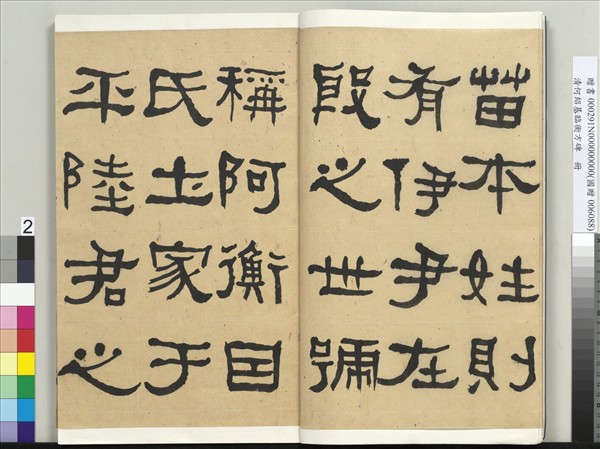 苗本姓則
有伊尹在
殷之世號
稱阿衡因
氏土家于
平陸君之
贈書 000291N000000000(國贈 006088)
清何紹基臨衡方碑 冊
2